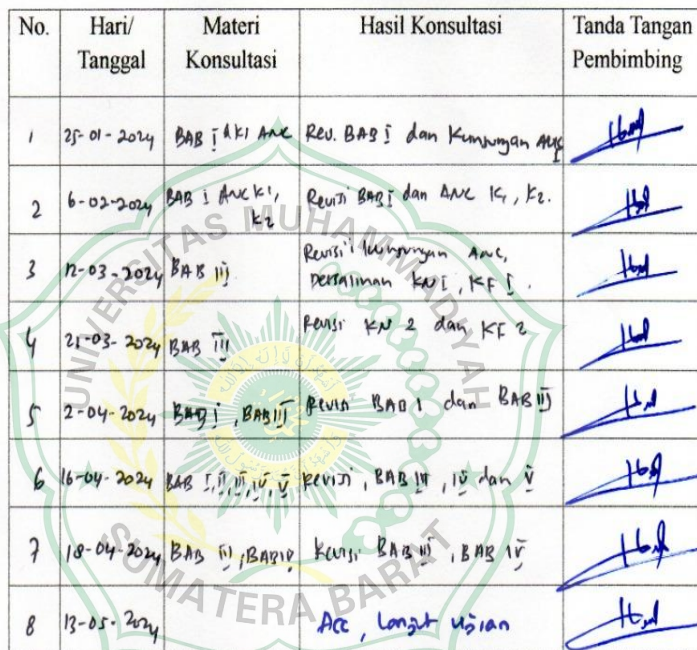 No. Hari/ Tanggal Materi Konsultasi Hasil Konsultasi Tanda Tangan Pembimbing
1 25-01-2024 BAB I K1 ANC Rev. BAB I dan Kunjungan ANC
2 6-02-2024 BAB I ANC K1, K2 Revisi BAB I dan ANC K1, K2.
3 12-03-2024 BAB III Revisi kunjungan ANC, Persalinan KN I, KF I.
4 21-03-2024 BAB III Revisi KN 2 dan KF 2
5 2-04-2024 BAB I, BAB III Revisi BAB I dan BAB III
6 16-04-2024 BAB I, II, III, IV, V Revisi, BAB III, IV dan V
7 18-04-2024 BAB III, BAB IV Revisi BAB III, BAB IV
8 13-05-2024 Acc, lanjut ujian
UNIVERSITAS MUHAMMADIYAH
SUMATERA BARAT